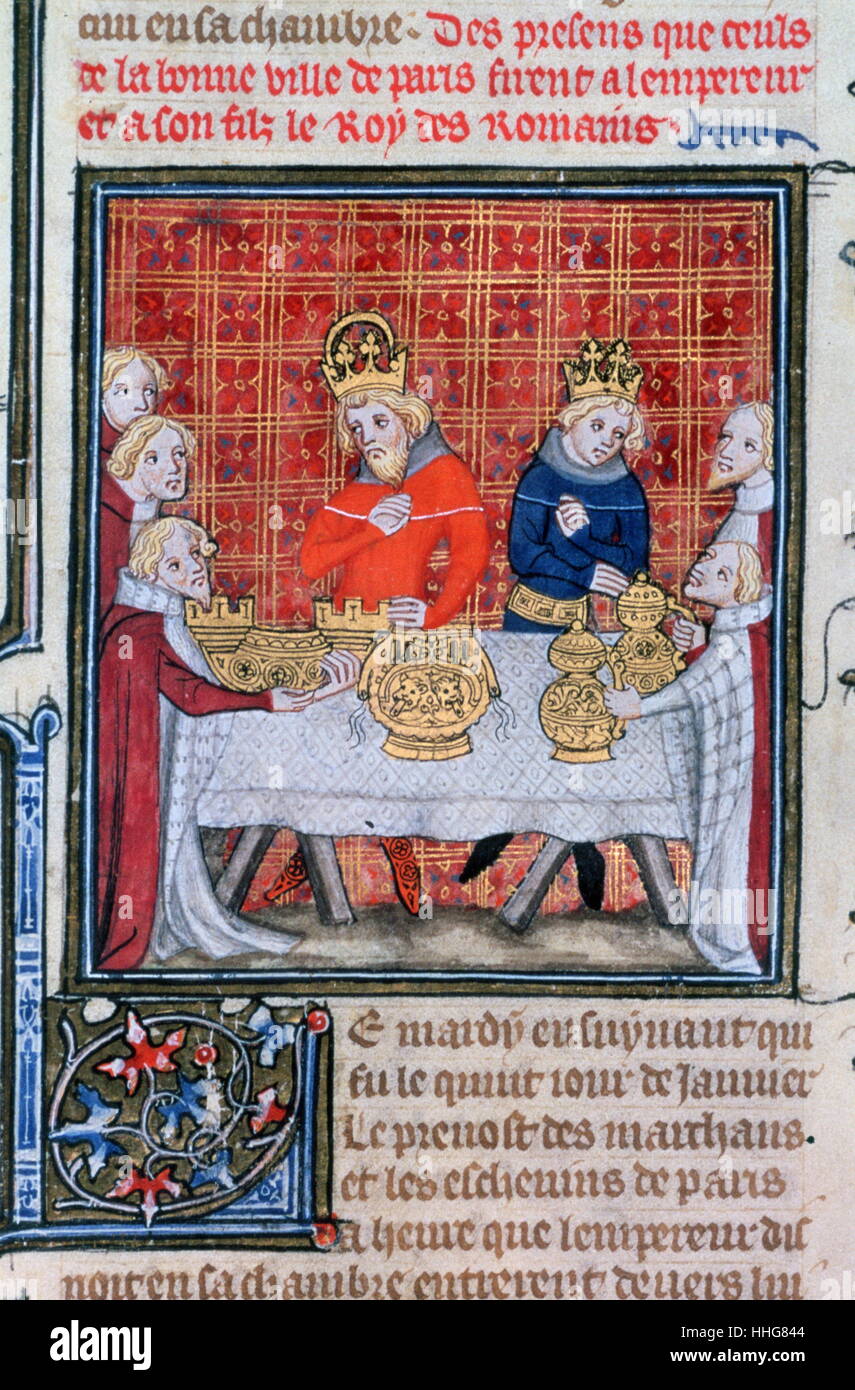 cun en sa chambre. Des presens que ceuls
de la bonne ville de paris firent a lempereur
et a son filz le Roy des Romains
E mardy ensuyuant qui
fu le quint iour de Januier
Le preuost des marchans.
et les escheuins de paris
a heure que lempereur dis
noit en sa chambre entrerent deuers lui
alamy stock photo
HHG844
www.alamy.com